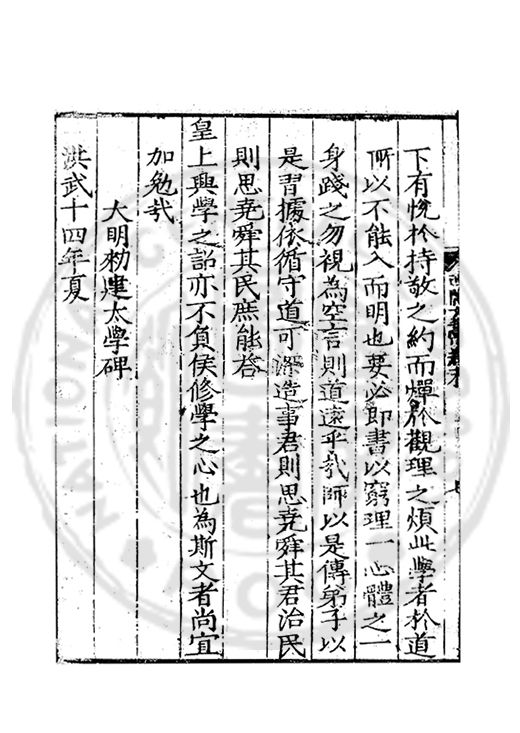 下有悅於持敬之約而憚於觀理之煩此學者於道
所以不能入而明也要必即書以窮理一心體之一
身踐之勿視為空言則道遠乎哉師以是傳弟子以
是習據依循守道可深造事君則思堯舜其君治民
則思堯舜其民庶能答
皇上興學之詔亦不負侯修學之心也為斯文者尚宜
加勉哉
大明勑建太學碑
洪武十四年夏